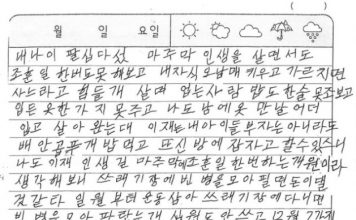 월 일 요일
내 나이 팔십다섯 마주막 인생을 살면서도
조훈일 한번도못해보고 내자식 오남매 키우고 가르치면
사느라고 힘들게 살며 업는사람 밥도한술못조보고
입든옷한가지 못주고 나도남에옷만날어더
입고 살아 왔는대 이재는내아이들부자는아니라도
배안곱푸개밥먹고 또신방에잠자고할수있스니
나도이재 인생길 마주막에조훈일한번하는개원이라
생각해보니 쓰래기장에빈병을모아팔면돈이댈
것갇다 일월부터운동삼아쓰래기장에다니면
빈병을모아 파랐는개 십원도 안쓰고 12월7가지